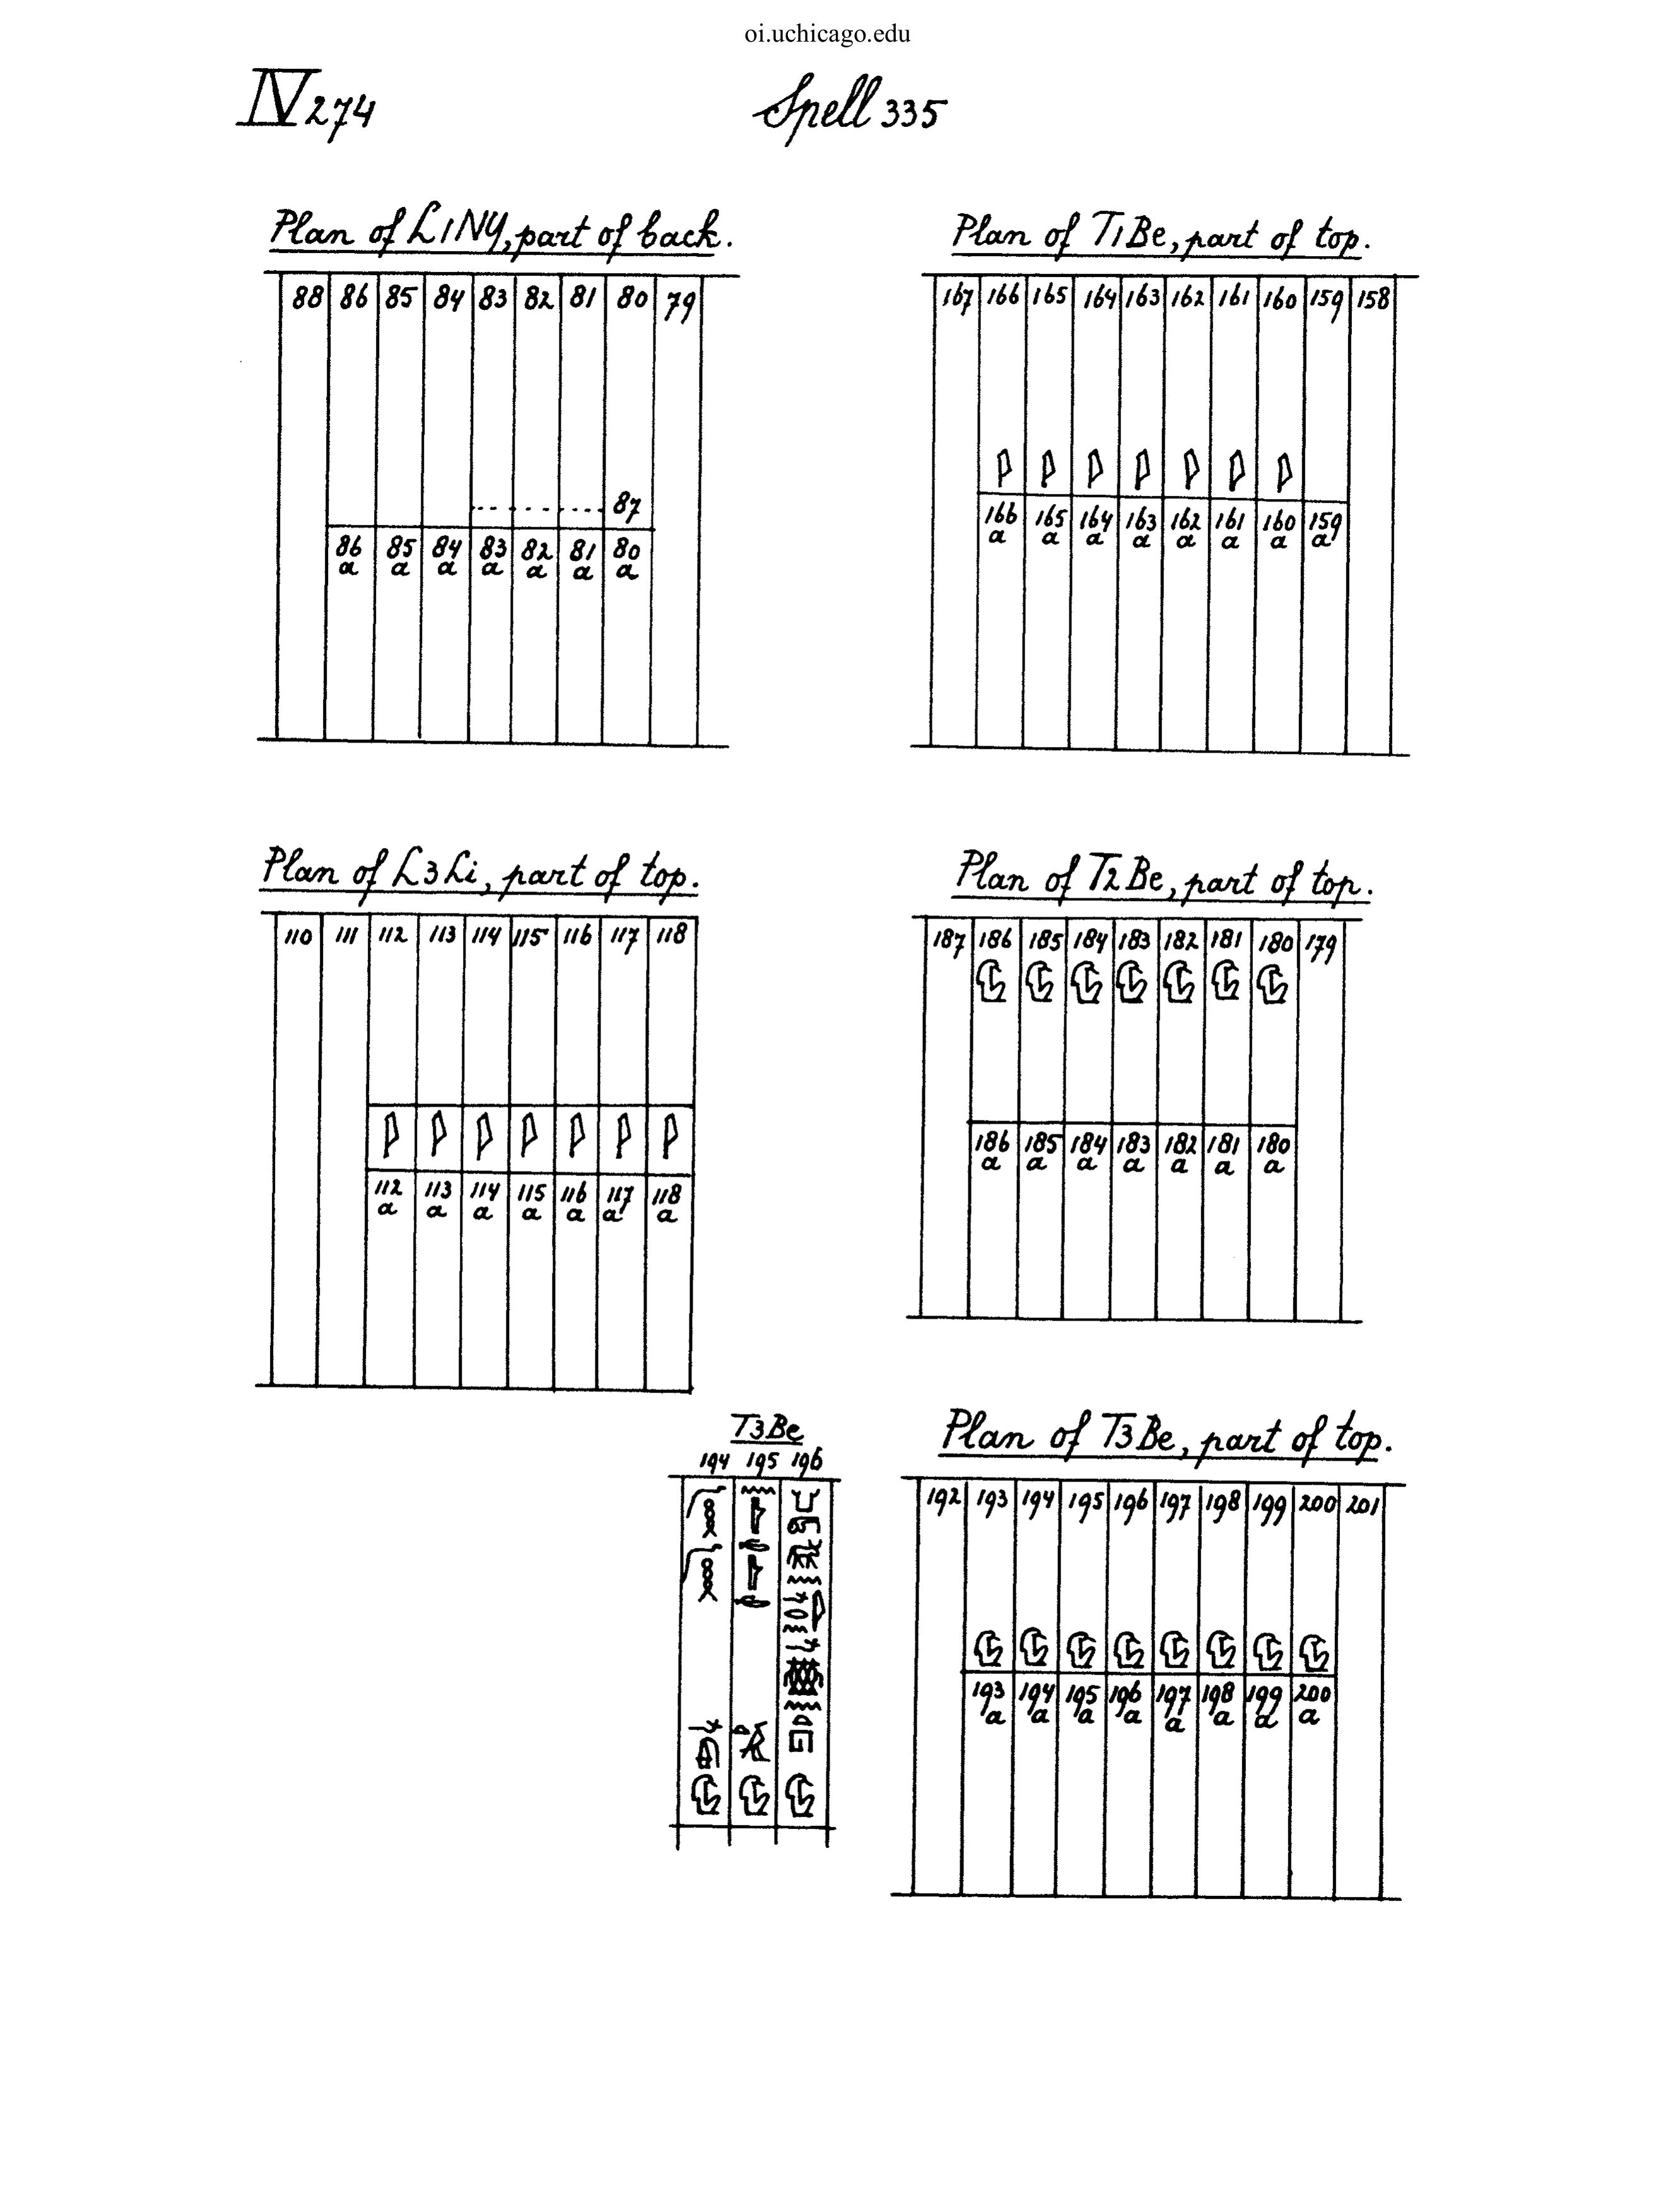 oi.uchicago.edu
IV 274
Spell 335
Plan of L1NY, part of back.
88 86 85 84 83 82 81 80 79
87
86 85 84 83 82 81 80
a a a a a a a
Plan of T1Be, part of top.
167 166 165 164 163 162 161 160 159 158
166 165 164 163 162 161 160 159
a a a a a a a a
Plan of L3Li, part of top.
110 111 112 113 114 115 116 117 118
112 113 114 115 116 117 118
a a a a a a a
Plan of T2Be, part of top.
187 186 185 184 183 182 181 180 179
186 185 184 183 182 181 180
a a a a a a a
T3Be
194 195 196
Plan of T3Be, part of top.
192 193 194 195 196 197 198 199 200 201
193 194 195 196 197 198 199 200
a a a a a a a a